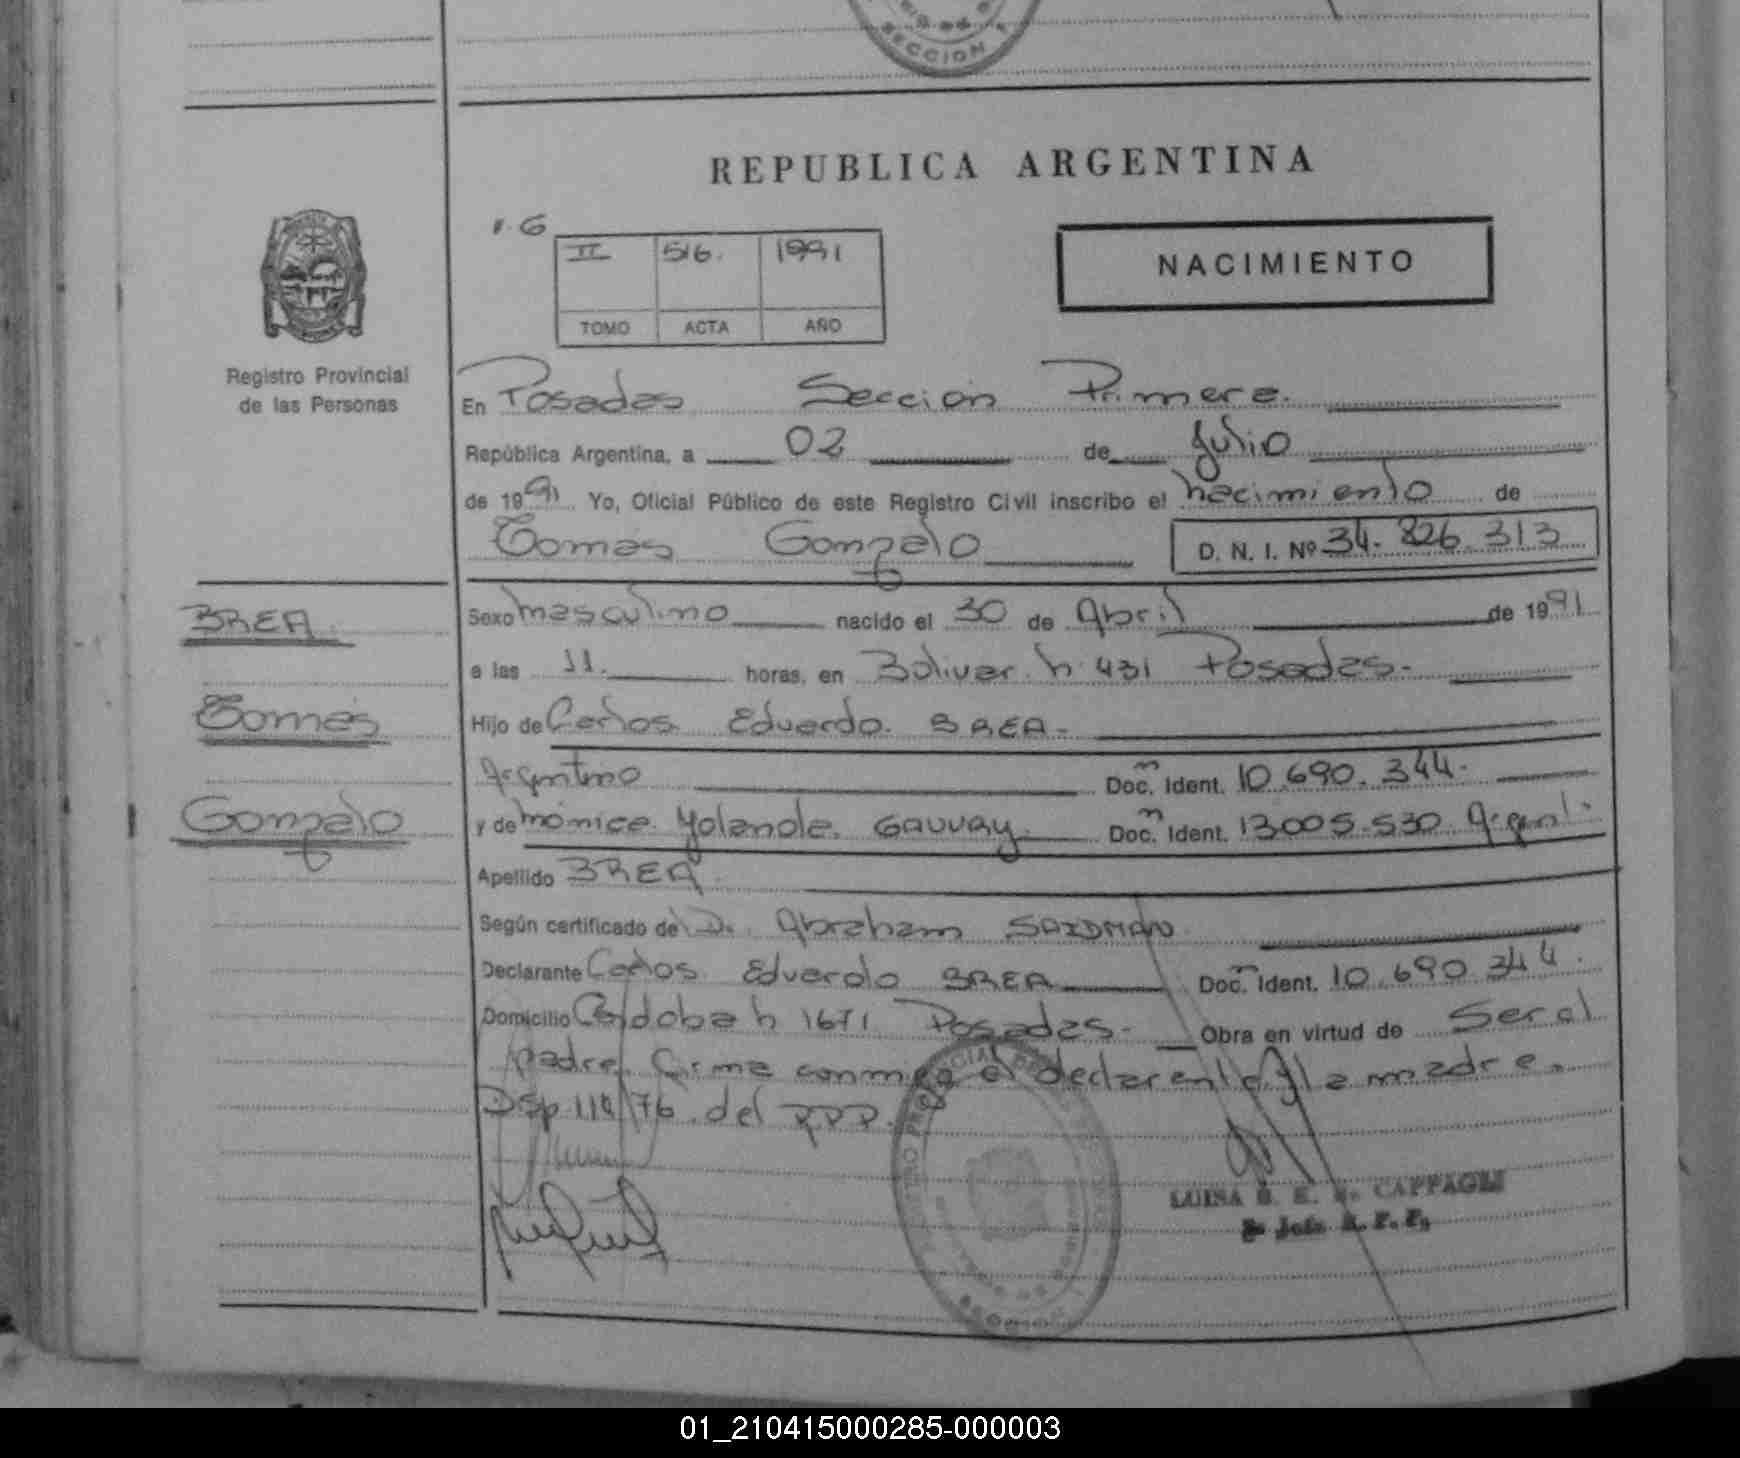 SECCION 1
REPUBLICA ARGENTINA
II 516. 1991
TOMO ACTA AÑO
NACIMIENTO
Registro Provincial
de las Personas
En Posadas Sección Primera.
República Argentina, a 02 de Julio
de 1991 Yo, Oficial Público de este Registro Civil inscribo el nacimiento de
Tomás Gonzalo D. N. I. Nº 34.826.313
BREA
Tomás
Gonzalo
Sexo masculino nacido el 30 de Abril de 1991
a las 11. horas, en Bolivar n 431 Posadas.
Hijo de Carlos Eduardo BREA
Argentino Doc. Ident. 10.690.344.
y de Mónica Yolanda GAUVRY Doc. Ident. 13.005.530 Argent.
Apellido BREA
Según certificado de Dr. Abraham SAIDMAN
Declarante Carlos Eduardo BREA Doc. Ident. 10.690.344.
Domicilio Córdoba n 1671 Posadas. Obra en virtud de Ser el
padre. Firma conmigo el declarante y la madre.
Disp. 114/76 del RPP.
LUISA CAPPAGLI
01_210415000285-000003